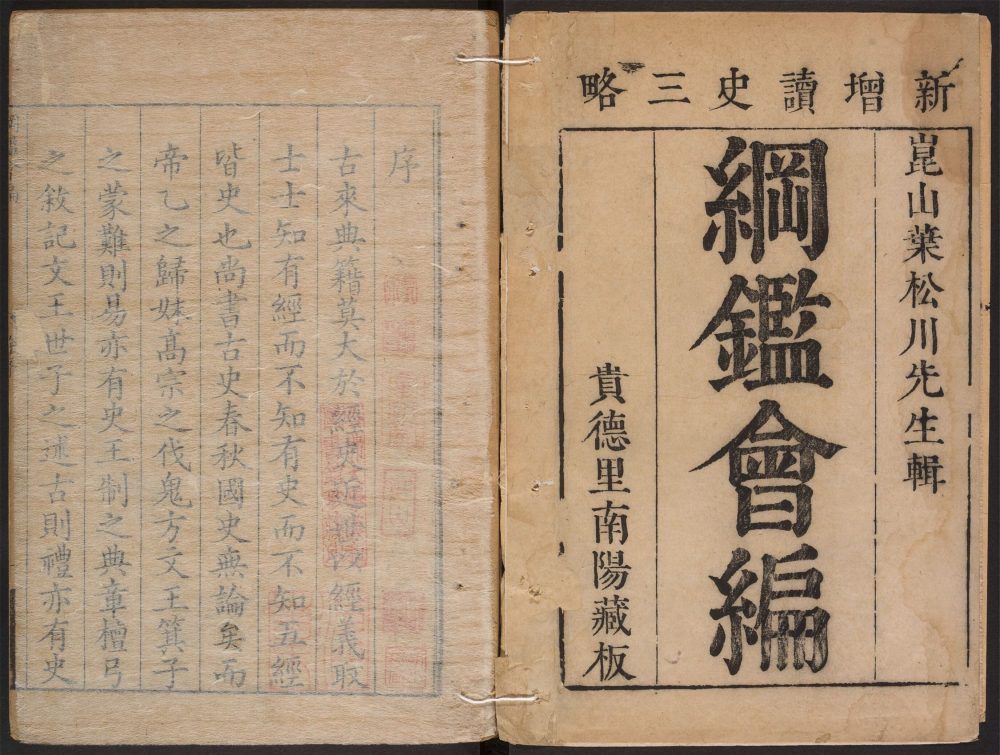 新增讀史三略
崑山葉松川先生輯
綱鑑會編
貴德里南陽藏板
序
古來典籍莫大於經史近世以經義取
士士知有經而不知有史而不知五經
皆史也尚書古史春秋國史無論矣而
帝乙之歸妹高宗之伐鬼方文王箕子
之蒙難則易亦有史王制之典章檀弓
之敘記文王世子之述古則禮亦有史